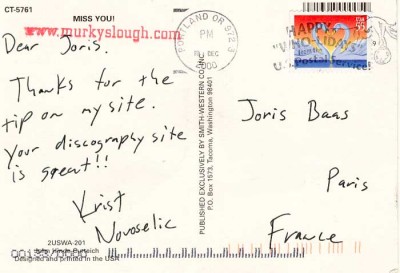 CT-5761
MISS YOU!
www.murkyslough.com
Dear Joris.
Thanks for the
tip on my site.
Your discography site
is great!!
Krist
Novoselic
2USWA-201
Designed and printed in the USA
PUBLISHED EXCLUSIVELY BY SMITH-WESTERN CO. INC.
P.O. BOX 1573, Tacoma, Washington 98401
PORTLAND OR 972
PM
DEC
2000
HAPPY
"WHO-LIDAYS"
U.S. Postal Service!
Joris Baas
Paris
France